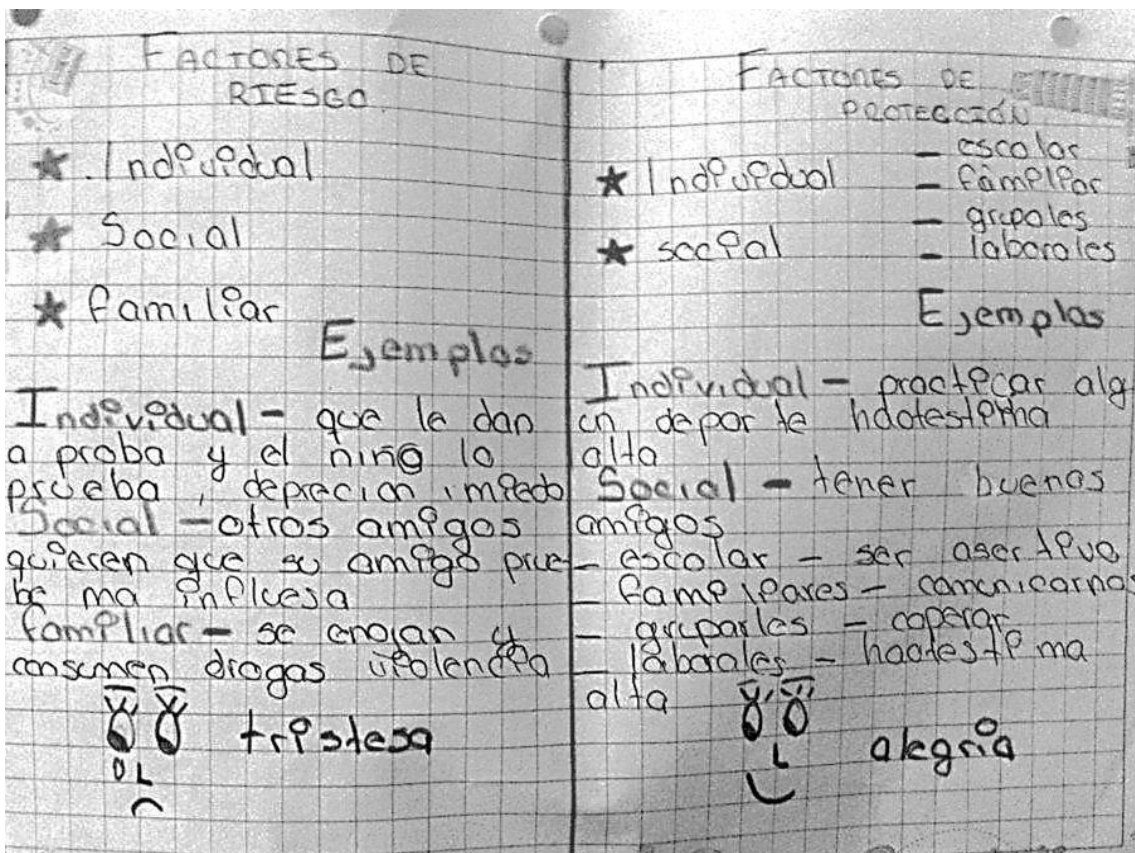 FACTORES DE
RIESGO
★ Individual
★ Social
★ familiar
Ejemplos
Individual - que le dan
a proba y el niño lo
prueba, deprecion, miedo
Social - otros amigos
quieren que su amigo prue
be ma influesa
familiar - se enojan y
consumen drogas violencia
tristesa
FACTORES DE
PROTECCIÓN
★ Individual
★ social
- escolar
- familiar
- grupales
- laborales
Ejemplos
Individual - practicar alg
un deporte
alta
Social - tener buenos
amigos
- escolar - ser asertivo
- familiares - comunicarnos
- gruparles - coperar
- laborales -
alta
alegria